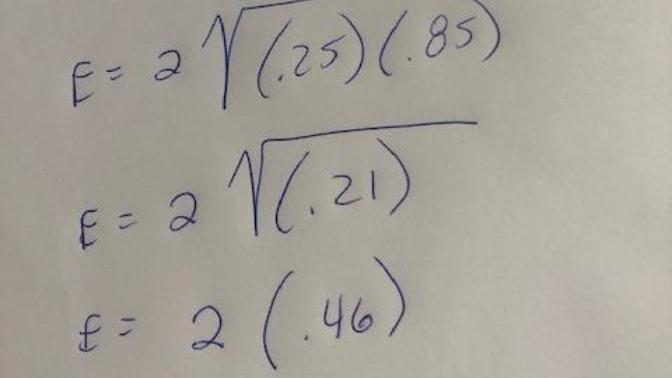 E = 2 √(.25)(.85)
E = 2 √(.21)
E = 2 (.46)